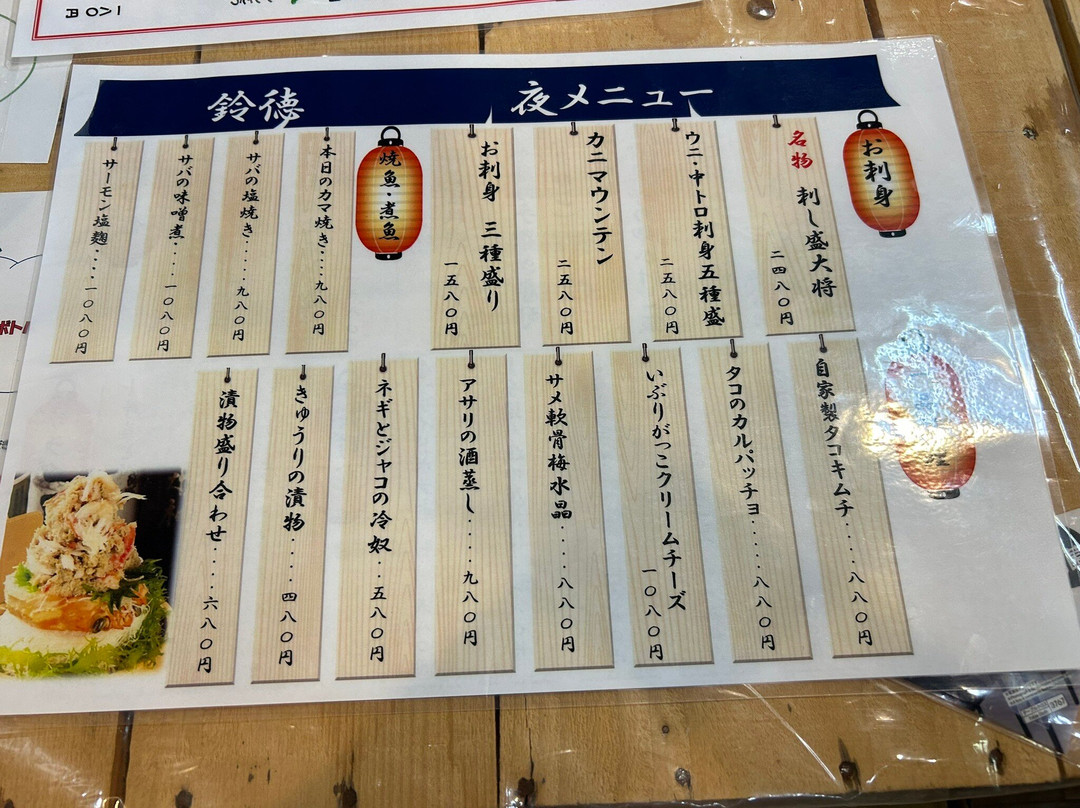 鈴徳
夜メニュー
お刺身
名物 刺し盛大将
二四八〇円
ウニ・中トロ刺身五種盛
二五八〇円
カニマウンテン
二五八〇円
お刺身 三種盛り
一五八〇円
焼魚・煮魚
本日のカマ焼き‥‥九八〇円
サバの塩焼き‥‥九八〇円
サバの味噌煮‥‥一〇八〇円
サーモン塩麹‥‥一〇八〇円
自家製タコキムチ‥‥八八〇円
タコのカルパッチョ‥‥八八〇円
いぶりがっこクリームチーズ
一〇八〇円
サメ軟骨梅水晶‥‥八八〇円
アサリの酒蒸し‥‥九八〇円
ネギとジャコの冷奴‥五八〇円
きゅうりの漬物‥‥四八〇円
漬物盛り合わせ‥‥六八〇円